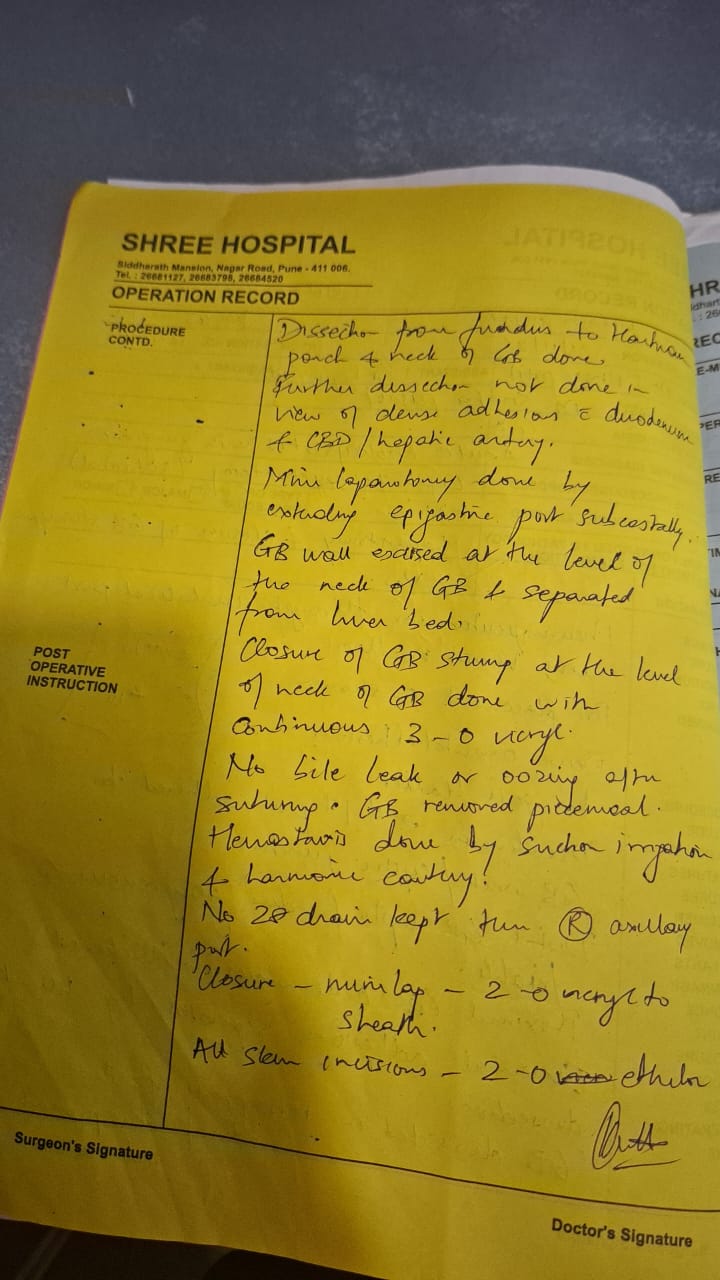 SHREE HOSPITAL
Siddharath Mansion, Nagar Road, Pune - 411 006.
Tel. : 26681127, 26683798, 26684520
OPERATION RECORD
PROCEDURE
CONTD.
Dissection from fundus to Hartman
pouch & neck of GB done.
Further dissection not done in
view of dense adhesions c̄ duodenum
& CBD/hepatic artery.
Mini laparotomy done by
extending epigastric port subcostally.
GB wall excised at the level of
the neck of GB & separated
from liver bed.
POST
OPERATIVE
INSTRUCTION
Closure of GB stump at the level
of neck of GB done with
continuous 3-0 vicryl.
No bile leak or oozing after
suturing. GB removed piecemeal.
Hemostasis done by suction irrigation
& harmonic cautery.
No 28 drain kept thru Ⓡ axillary
port.
Closure - mini lap - 2-0 vicryl to
sheath.
All skin incisions - 2-0 ethilon
Surgeon's Signature
Doctor's Signature